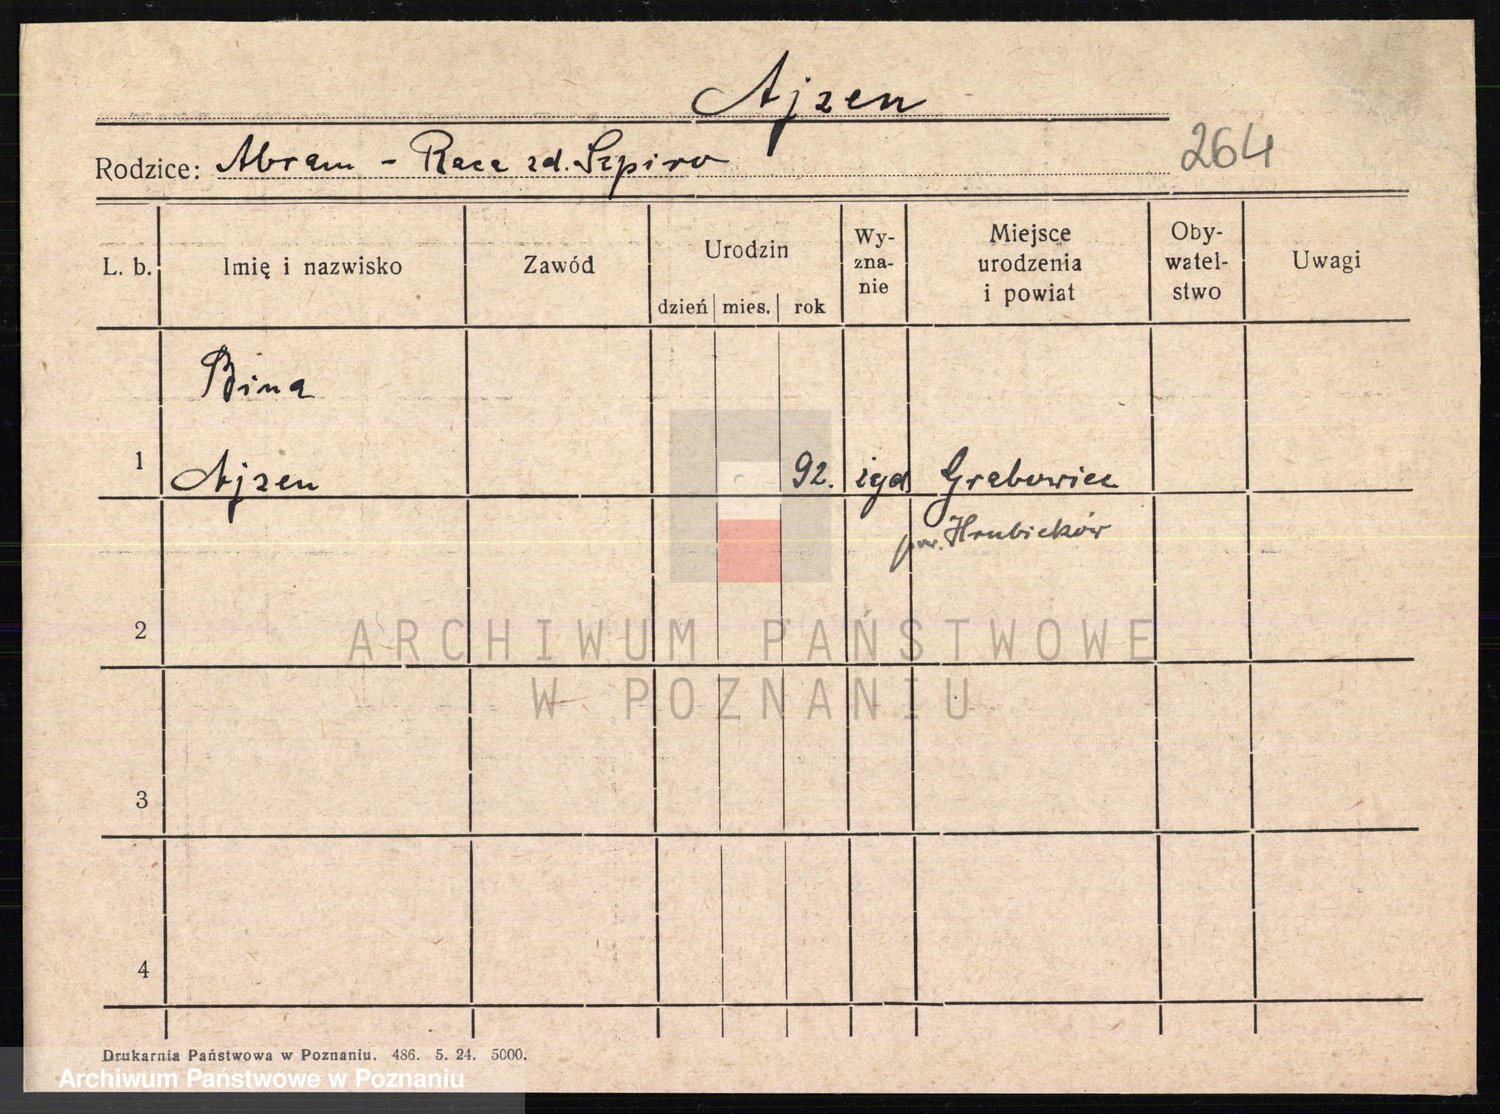 Ajzen
Rodzice: Abram - Raca zd. Szpiro
264
L. b. Imię i nazwisko Zawód Urodzin dzień mies. rok Wy-zna-nie Miejsce urodzenia i powiat Oby-watel-stwo Uwagi
Bina
1 Ajzen 92. żyd Grabowiec
pow. Hrubieków
2
ARCHIWUM PAŃSTWOWE
W POZNANIU
3
4
Drukarnia Państwowa w Poznaniu. 486. 5. 24. 5000.
Archiwum Państwowe w Poznaniu